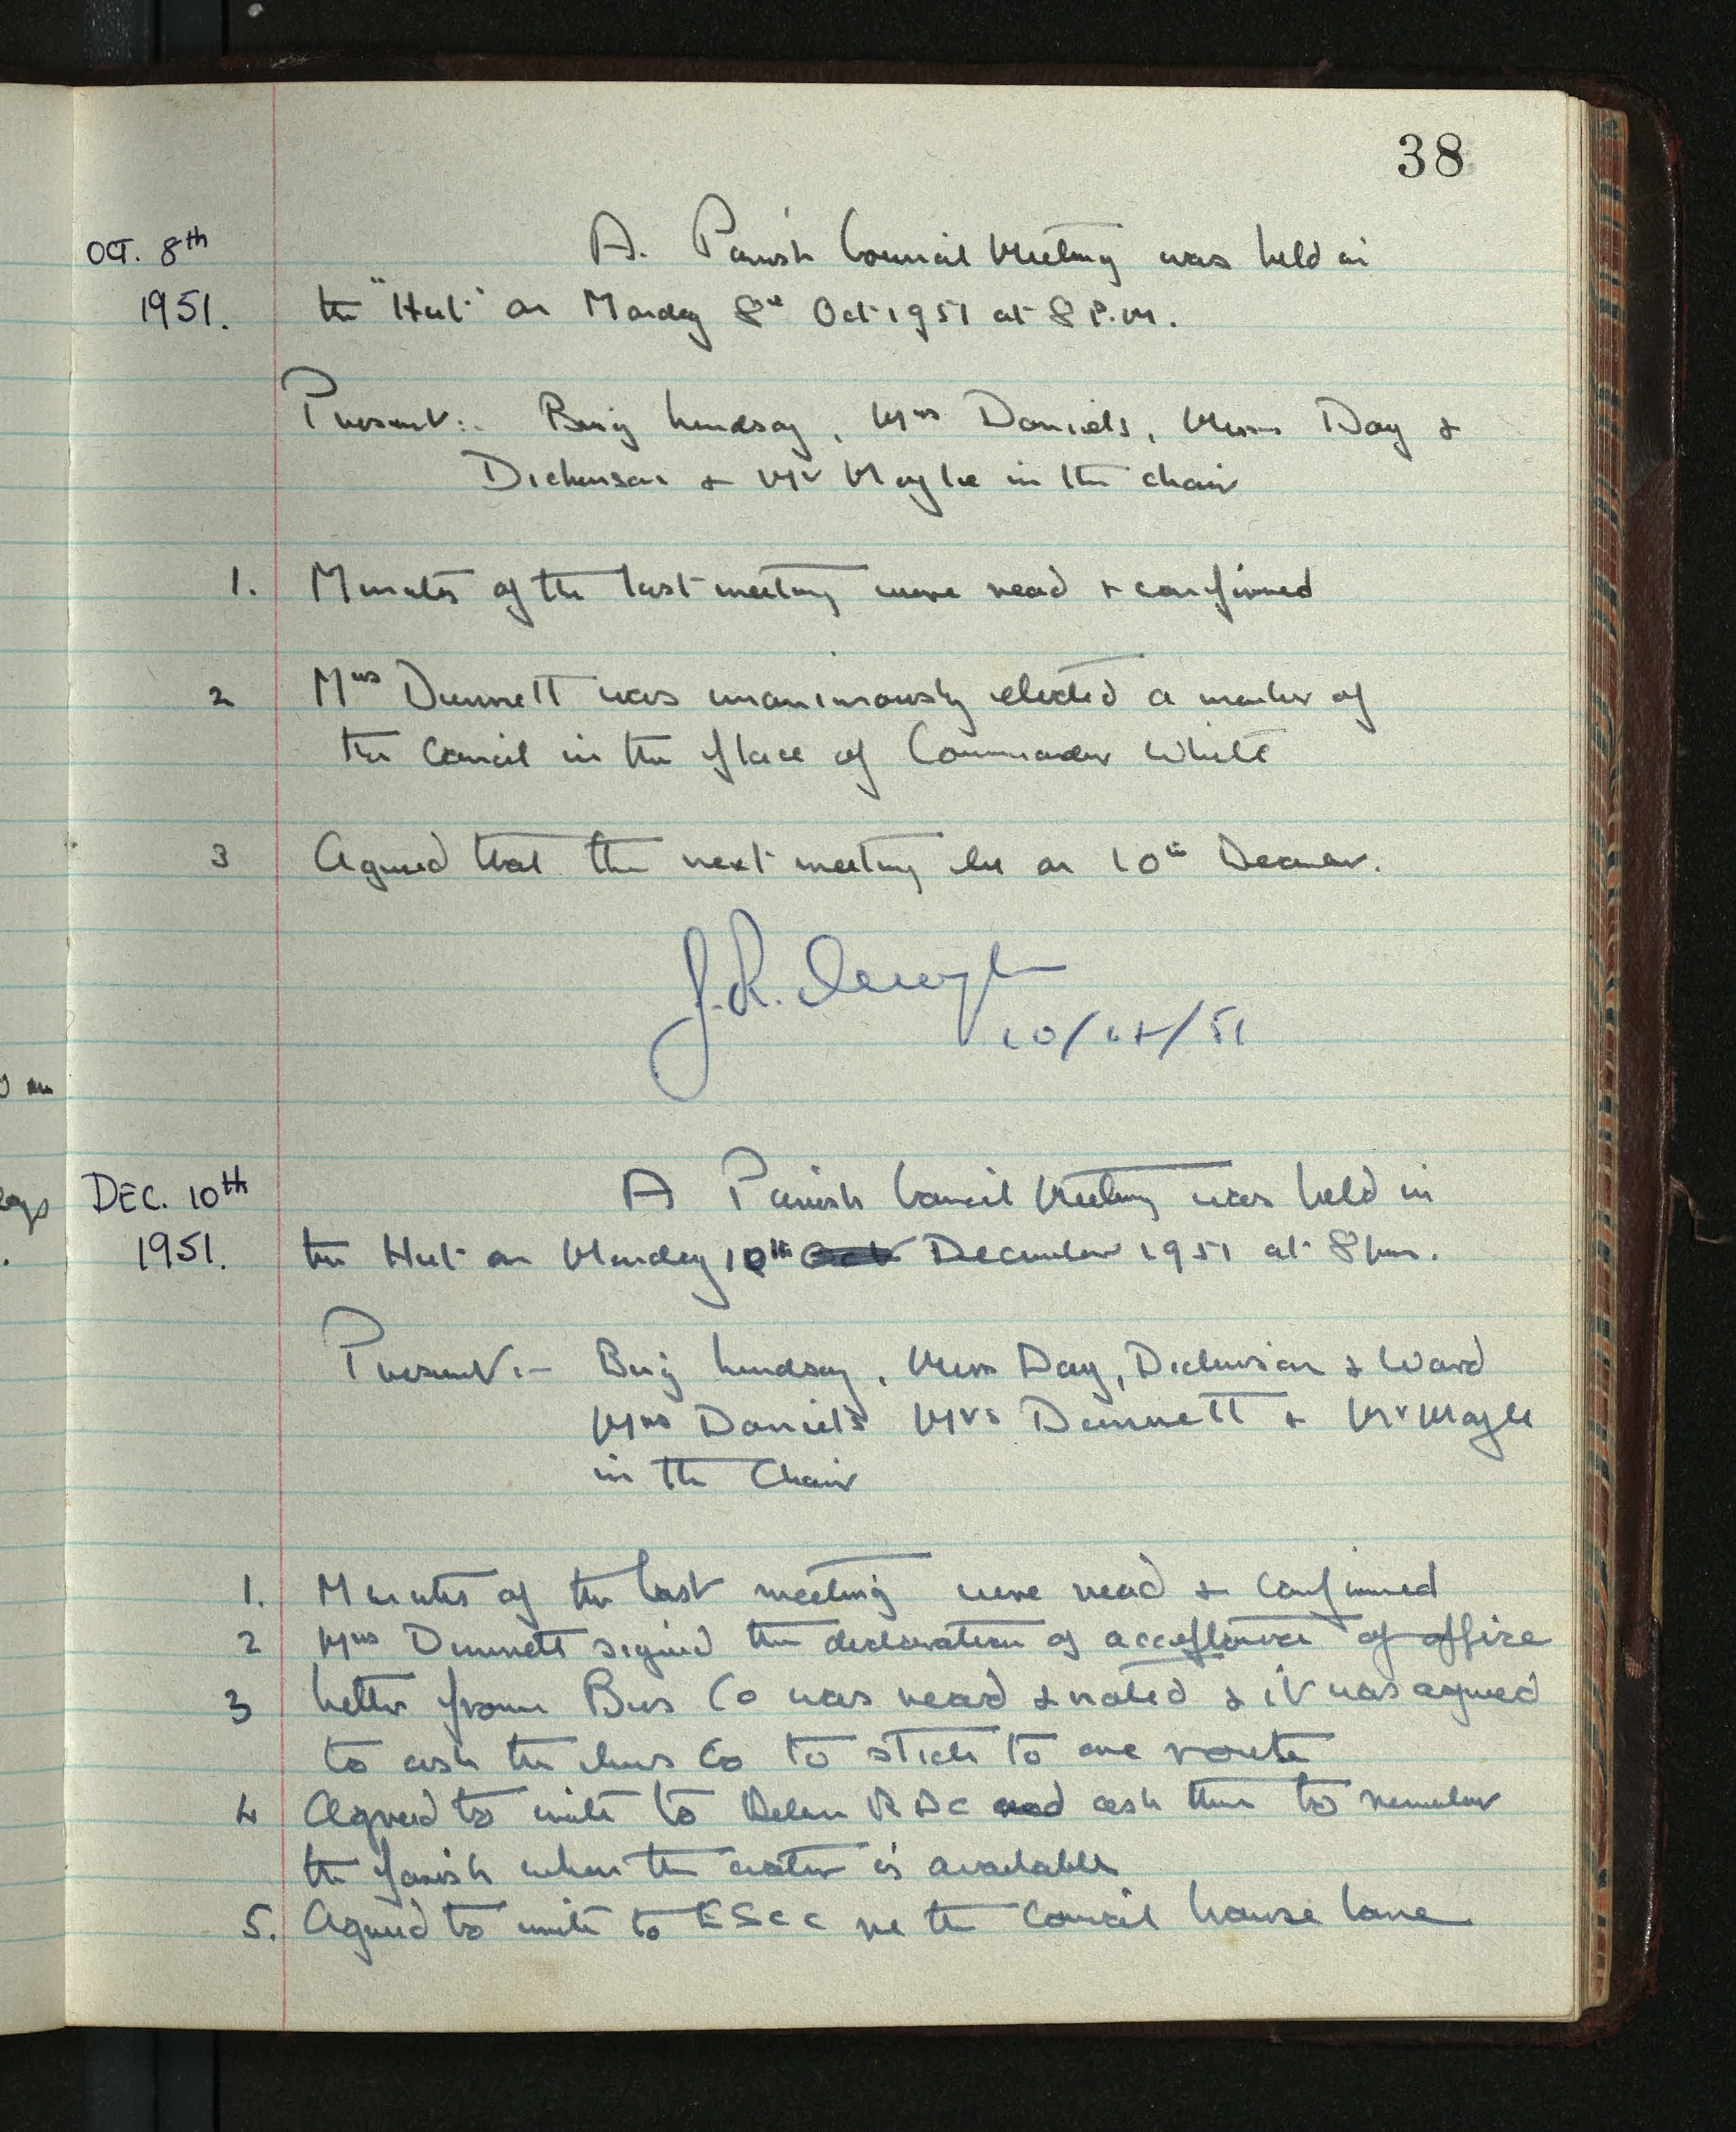 38
OCT. 8th
1951.
A. Parish Council Meeting was held in
the "Hut" on Monday 8th Oct 1951 at 8 P.M.
Present:- Brig Lindsay, Mrs Daniels, Messrs Day &
Dickinson & Mr Mayle in the chair
1. Minutes of the last meeting were read & confirmed
2 Mrs Dunnett was unanimously elected a member of
the Council in the place of Commander White
3 Agreed that the next meeting be on 10th December.
10/12/51
DEC. 10th
1951.
A Parish Council Meeting was held in
the Hut on Monday 10th Oct December 1951 at 8pm.
Present:- Brig Lindsay, Messrs Day, Dickinson & Ward
Mrs Daniels Mrs Dunnett & Mr Mayle
in the Chair
1. Minutes of the last meeting were read & confirmed
2 Mrs Dunnett signed the declaration of acceptance of office
3 Letter from Bus Co was read & noted & it was agreed
to ask the bus Co to stick to one route
4 Agreed to write to Deben RDC and ask them to remember
the parish when the water is available
5. Agreed to write to ESCC re the Council house lane